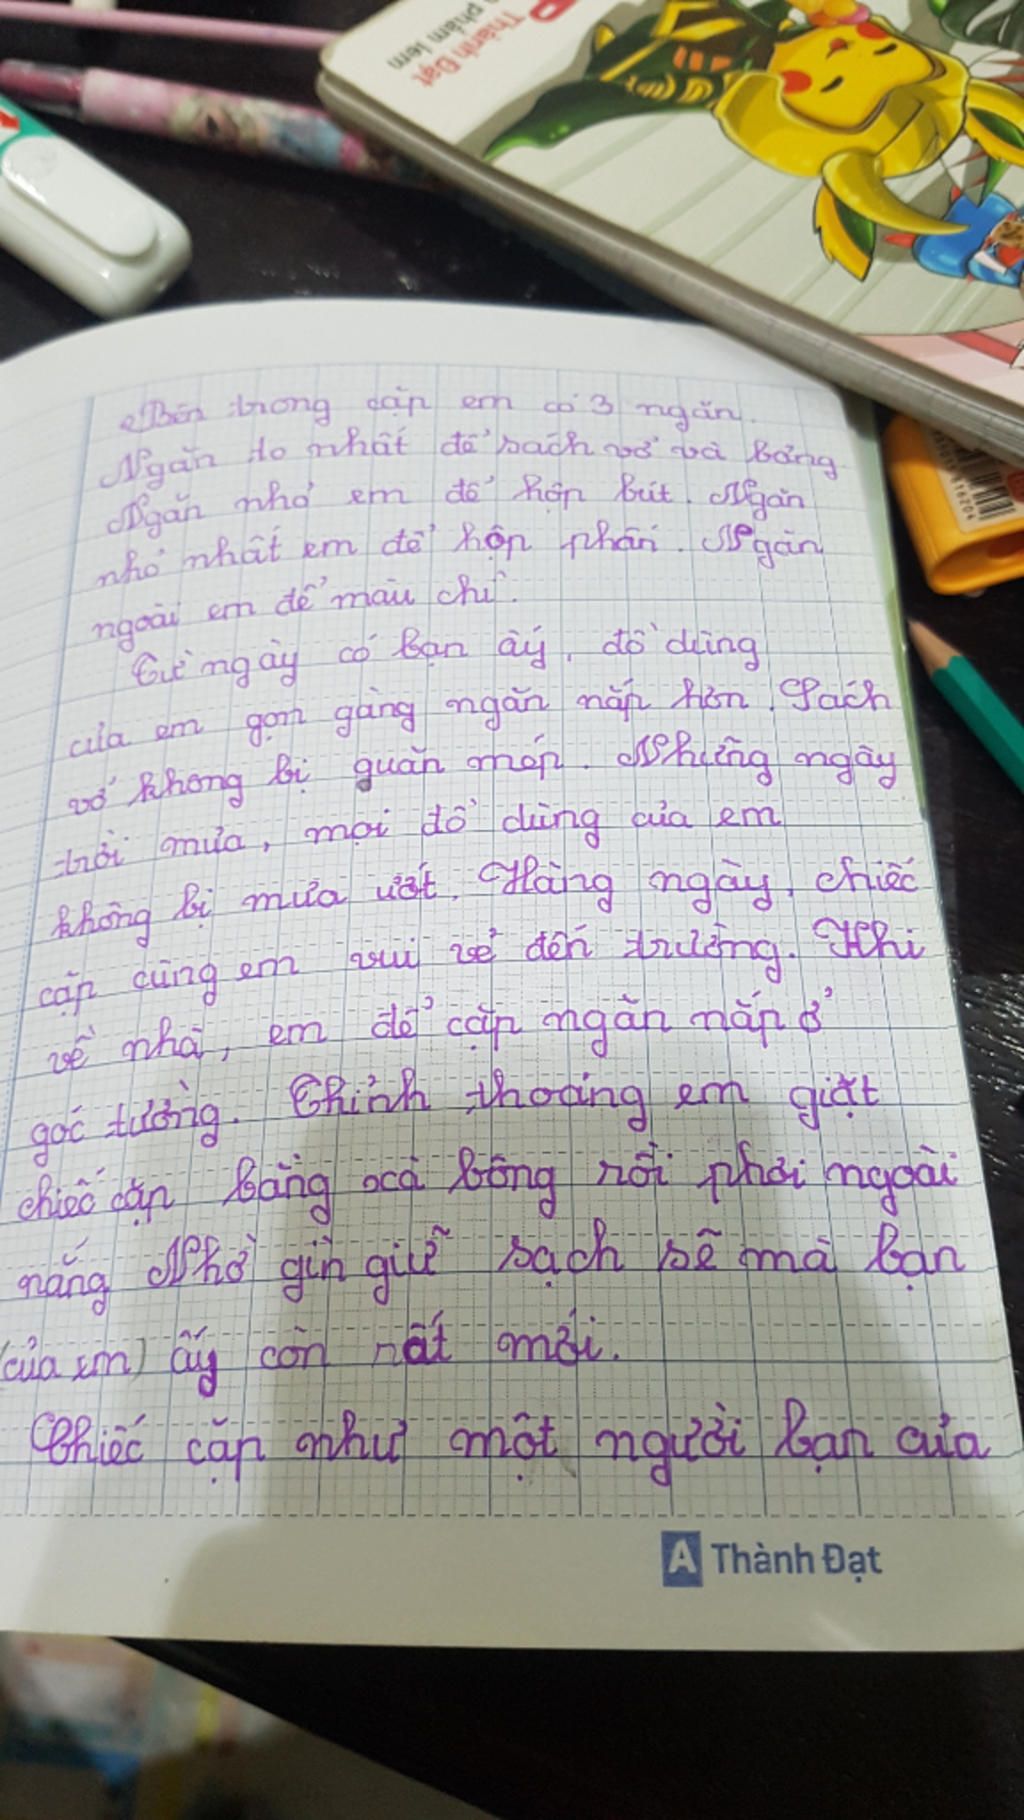 Thành Đạt
phẩm lem
Bên trong cặp em có 3 ngăn.
Ngăn to nhất để sách vở và bảng
Ngăn nhỏ em để hộp bút. Ngăn
nhỏ nhất em để hộp phấn. Ngăn
ngoài em để màu chì.
Từ ngày có bạn ấy, đồ dùng
của em gọn gàng ngăn nắp hơn. Sách
vở không bị quăn mép. Những ngày
trời mưa, mọi đồ dùng của em
không bị mưa ướt. Hàng ngày, chiếc
cặp cùng em vui vẻ đến trường. Khi
về nhà, em để cặp ngăn nắp ở
góc tường. Thỉnh thoảng em giặt
chiếc cặp bằng xà bông rồi phơi ngoài
nắng Nhờ gìn giữ sạch sẽ mà bạn
(của em) ấy còn rất mới.
Chiếc cặp như một người bạn của
A Thành Đạt